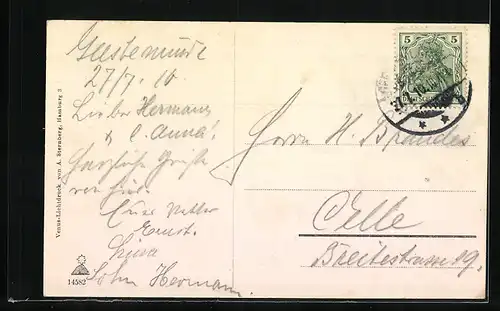 Geestemünde
27/7. 10.
Lieber Hermann
& l. Anna!
Herzliche Grüße
von hier.
Euer Vetter
Ernst.
Luise
Sohn Hermann.
Herrn H. Brandes
Celle
Breitestrasse 19.
5 5
Venus-Lichtdruck von A. Sternberg, Hamburg 3
14582